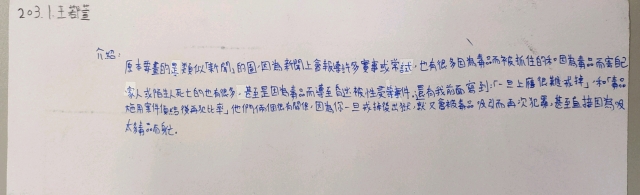 203.1.王
介紹:
原本要畫的是類似「新聞」的圖,因為新聞上會報導許多實事或常試,也有很多因為毒品而被抓住的和因為毒品而害自己
家人或陌生人死亡的也有很多,甚至是因為毒品而遭至自述被性愛等事件,還有我前面寫到:「一旦上癮很難戒掉」和「毒品
施用案件後再犯比率」他們兩個很有關係,因為你一旦戒掉後出獄,獄又會被毒品吸引而再次犯罪,甚至直接因為吸
太毒品而死。